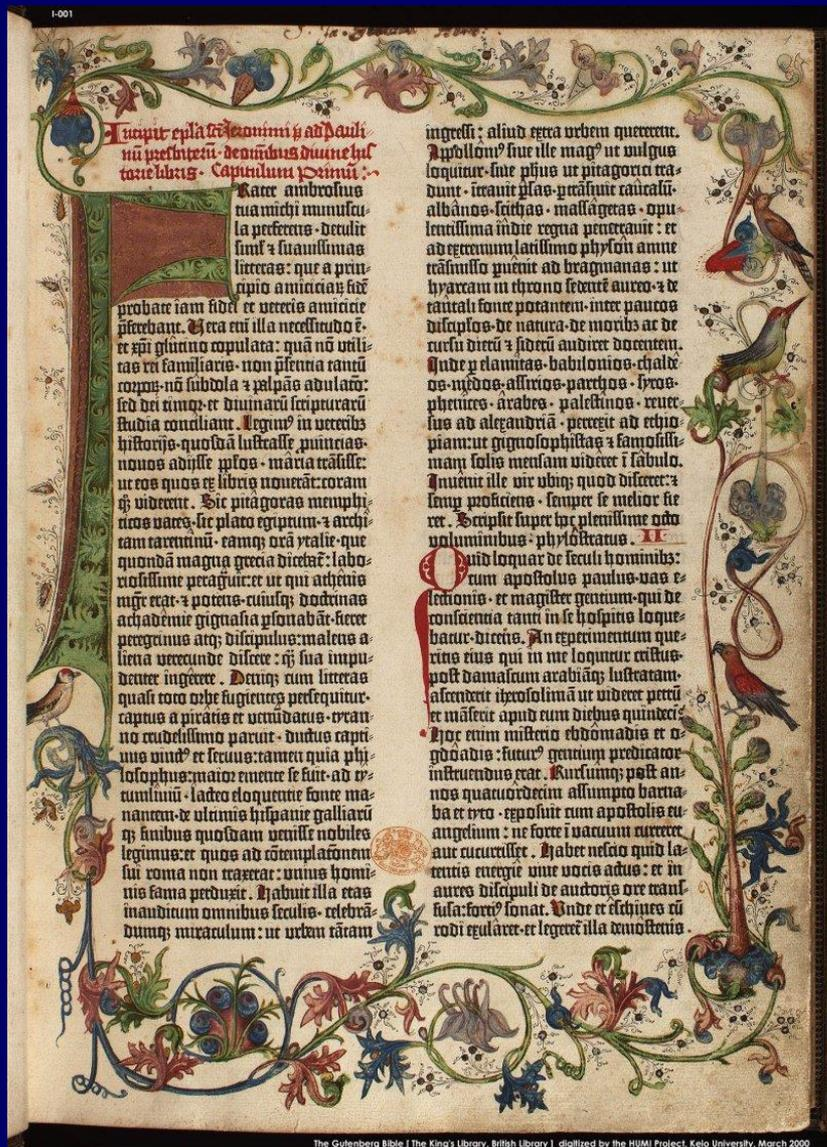 I-001
Incipit epl'a scī Jeronimi p̄ ad Pauli-
nū presbiterū · de omībus divine his-
torie libris · Capitulum Primū :
Frater ambrosius
tua michi munuscu-
la perferens · detulit
simł ⁊ suavissimas
litteras : que a prin-
cipio amiciciaꝝ fidē
probate iam fidei et veteris amicicie
p̄ferebant. Vera eni illa necessitudo ē ·
et xp̄i glutino copulata : quā nō utili-
tas rei familiaris · non p̄sentia tantū
corpoꝝ · nō subdola ⁊ palpās adulatō :
sed dei timor · et divinarū scripturarū
studia conciliant . Legimꝰ in veteribꝫ
historijs · quosdā lustrasse ꝓvincias ·
novos adijsse ppłos · maria trāsisse :
ut eos quos ex libris noverāt : coram
qꝫ viderent . Sic pitagoras memphi-
ticos vates · sic plato egiptum · ⁊ archi-
tam tarentinū · eamqꝫ orā ytalie · que
quondā magna grecia dicebat̄ : labo-
riosissime peragrauit : et ut qui athenis
mgr̄ erat · ⁊ potens · cuiusqꝫ doctrinas
achademie gignasia ꝑsonabāt · fieret
peregrinus atqꝫ discipulus : malens a-
liena verecunde discere : qꝫ sua impu-
denter ingerere . Deniqꝫ cum litteras
quasi toto orbe fugientes persequitur ·
captus a piratis et venūdatus · tyran-
no crudelissimo paruit · ductus capti-
vus vinctꝰ et seruus : tamen quia phi-
losophus : maior emente se fuit · ad ty-
tumliviū · lacteo eloquentie fonte ma-
nantem · de ultimis hispanie galliarū
qꝫ finibus quosdam venisse nobiles
legimus : et quos ad cōtemplatōnem
sui roma non traxerat : unius homi-
nis fama perduxit . Habuit illa etas
inauditum omnibus seculis · celebrā-
dumqꝫ miraculum : ut urbem tātam
ingressi : aliud extra urbem quererent .
Appollonꝰ sive ille magꝰ ut vulgus
loquitur · sive ph̄us ut pitagorici tra-
dunt · ītravit ꝑsas · ꝑtrāsivit caucasū ·
albanos · scithas · massagetas · opu-
lentissima īndie regna penetravit : et
ad extremum latissimo physon amne
trāsmisso ꝑvenit ad bragmanas : ut
hyarcam in throno sedentē aureo · ⁊ de
tantali fonte potantem · inter paucos
discipłos · de natura · de moribꝫ ac de
cursu dierū ⁊ siderū audiret docentem .
Inde ꝑ elamitas · babilonios · chalde-
os · medos · assirios · parthos · syros ·
phenices · arabes · palestinos · rever-
sus ad alexandriā · perrexit ad ethio-
piam : ut gignosophistas ⁊ famosissi-
mam solis mensam videret ī sabulo .
Invenit ille vir ubiqꝫ quod disceret : ⁊
semꝑ proficiens · semper se melior fie
ret . Scripsit super hoc plenissime octo
voluminibus · phylostratus . II
Quid loquar de seculi hominibꝫ :
cum apostolus paulus · vas e-
lectionis · et magister gentium · qui de
conscientia tanti in se hospitis loque-
batur · dicens . An experimentum que-
ritis eius qui in me loquitur cristus ·
post damascum arabiāqꝫ lustratam ·
ascenderit iherosolimā ut videret petrū
et māserit apud eum diebus quindeci .
Hoc enim misterio ebdomadis et o-
gdoadis : futurꝰ gentium predicator
instruendus erat . Rursumqꝫ post an-
nos quatuordecim assumpto barna-
ba et tyto · exposuit cum apostolis eu-
angelium : ne forte ī vacuum curreret
aut cucurrisset . Habet nescio quid la-
tentis energie vive vocis actus : et in
aures discipuli de auctoris ore trans-
fusa : fortiꝰ sonat . Unde et eschines cū
rodi exularet · et legeret̄ illa demostenis .
The Gutenberg Bible [ The King's Library, British Library ] digitized by the HUMI Project, Keio University, March 2000